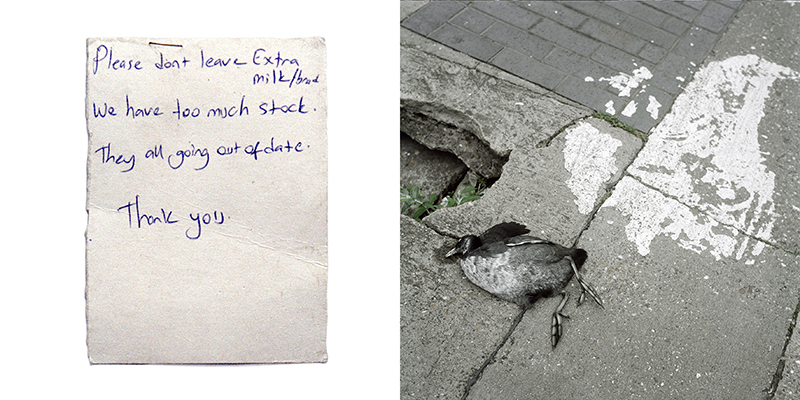 Please dont leave Extra
milk/bread
We have too much stock.
They all going out of date.
Thank you.